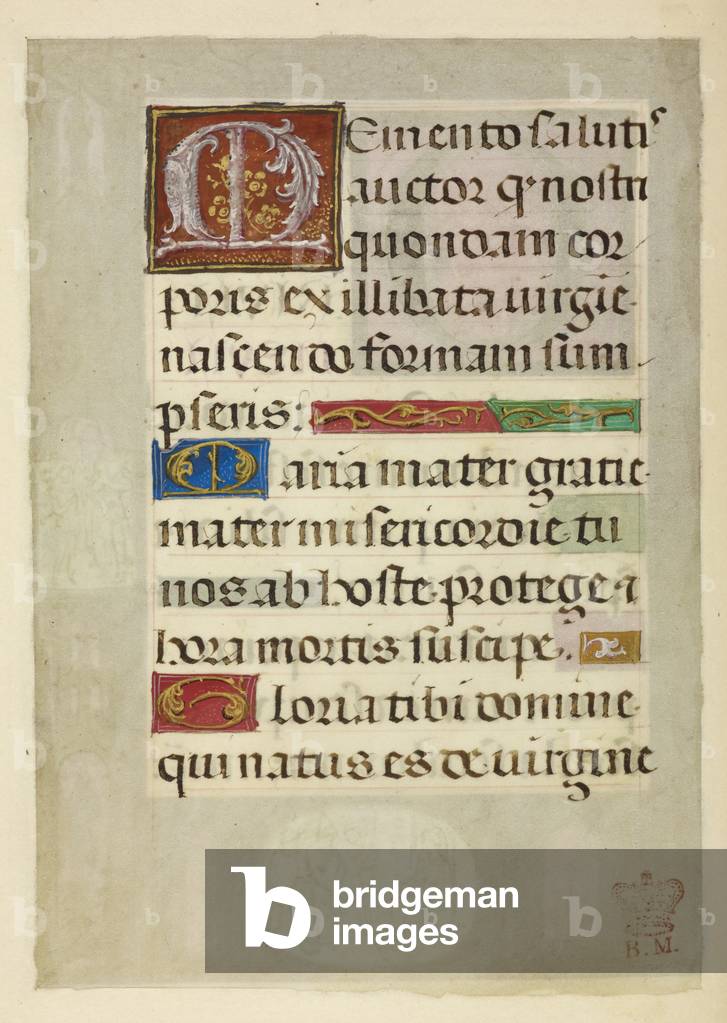 Memento salutis
auctor q nostri
quondam cor
poris ex illibata uirgie
nascendo formam sum
pseris:
Maria mater gratie
mater misericordie tu
nos ab hoste protege &
hora mortis suscipe.
Gloria tibi domine
qui natus es de uirgine
bridgeman
images
B. M.